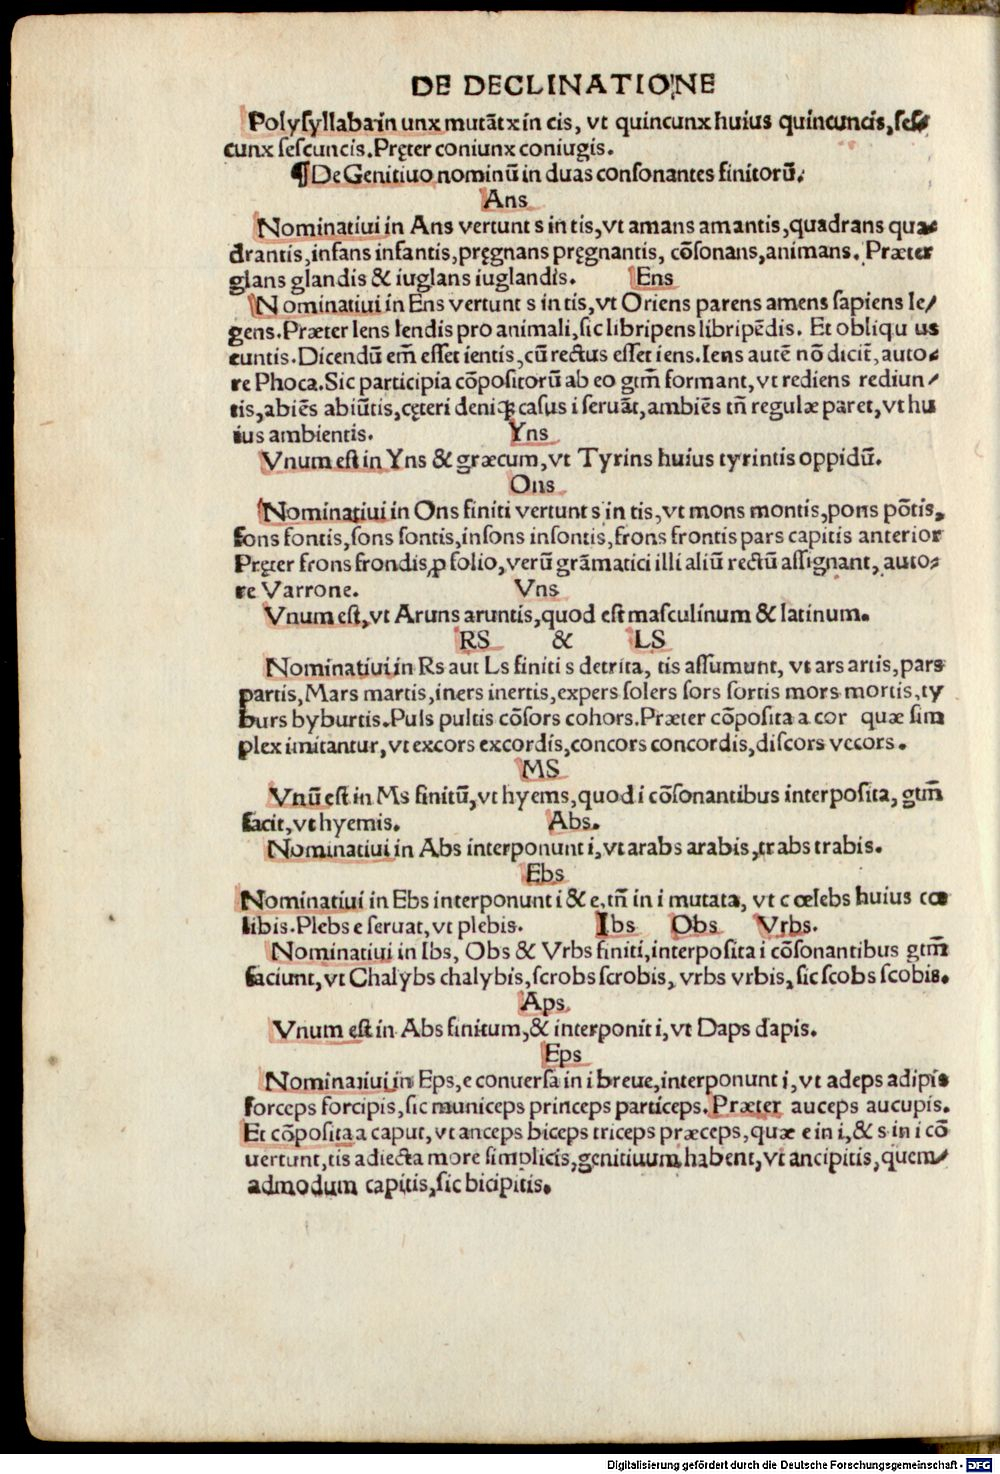 DE DECLINATIONE
Polysyllaba in unx mutãt x in cis, vt quincunx huius quincuncis, ses
cunx sescuncis. Pręter coniunx coniugis.
¶ De Genitiuo nominũ in duas consonantes finitorũ.
Ans
Nominatiui in Ans vertunt s in tis, vt amans amantis, quadrans qua-
drantis, infans infantis, pręgnans pręgnantis, cõsonans, animans. Præter
glans glandis & iuglans iuglandis. Ens
Nominatiui in Ens vertunt s in tis, vt Oriens parens amens sapiens le/
gens. Præter lens lendis pro animali, sic libripens libripẽdis. Et obliqu us
euntis. Dicendũ em̃ esset ientis, cũ rectus esset iens. Iens autẽ nõ dicit̃, auto-
re Phoca. Sic participia cõpositorũ ab eo gtm̃ formant, vt rediens rediun/
tis, abiẽs abiũtis, cęteri deniqꝫ casus i seruãt, ambiẽs tñ regulæ paret, vt hu
ius ambientis. Yns
Vnum est in Yns & græcum, vt Tyrins huius tyrintis oppidũ.
Ons
Nominatiui in Ons finiti vertunt s in tis, vt mons montis, pons põtis,
fons fontis, sons sontis, insons insontis, frons frontis pars capitis anterior
Pręter frons frondis, ꝓ folio, verũ grãmatici illi aliũ rectũ assignant, auto-
re Varrone. Vns
Vnum est, vt Aruns aruntis, quod est masculinum & latinum.
RS & LS
Nominatiui in Rs aut Ls finiti s detrita, tis assumunt, vt ars artis, pars
partis, Mars martis, iners inertis, expers solers sors sortis mors mortis, ty
burs byburtis. Puls pultis cõsors cohors. Præter cõposita a cor quæ sim
plex imitantur, vt excors excordis, concors concordis, discors vecors.
MS
Vnũ est in Ms finitũ, vt hyems, quod i cõsonantibus interposita, gtm̃
facit, vt hyemis. Abs.
Nominatiui in Abs interponunt i, vt arabs arabis, trabs trabis.
Ebs
Nominatiui in Ebs interponunt i & e, tñ in i mutata, vt c œlebs huius cœ
libis. Plebs e seruat, vt plebis. Ibs Obs Vrbs.
Nominatiui in Ibs, Obs & Vrbs finiti, interposita i cõsonantibus gtm̃
faciunt, vt Chalybs chalybis, scrobs scrobis, vrbs vrbis, sic scobs scobis.
Aps.
Vnum est in Abs finitum, & interponit i, vt Daps dapis.
Eps
Nominatiui in Eps, e conuersa in i breue, interponunt i, vt adeps adipis
forceps forcipis, sic municeps princeps particeps. Præter auceps aucupis.
Et cõposita a caput, vt anceps biceps triceps præceps, quæ e in i, & s in i cõ
uertunt, tis adiecta more simplicis, genitiuum habent, vt ancipitis, quem/
admodum capitis, sic bicipitis.
Digitalisierung gefördert durch die Deutsche Forschungsgemeinschaft - DFG